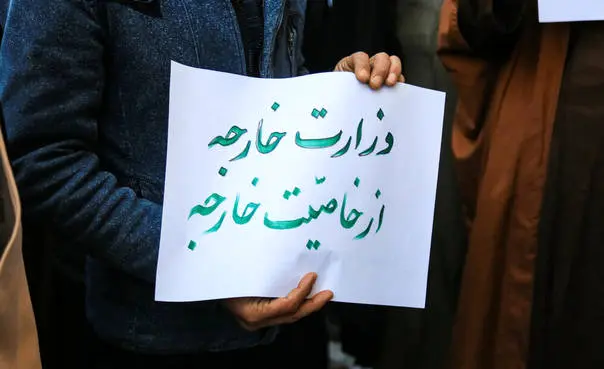 وزارت خارجه
از خاصیّت خارجه